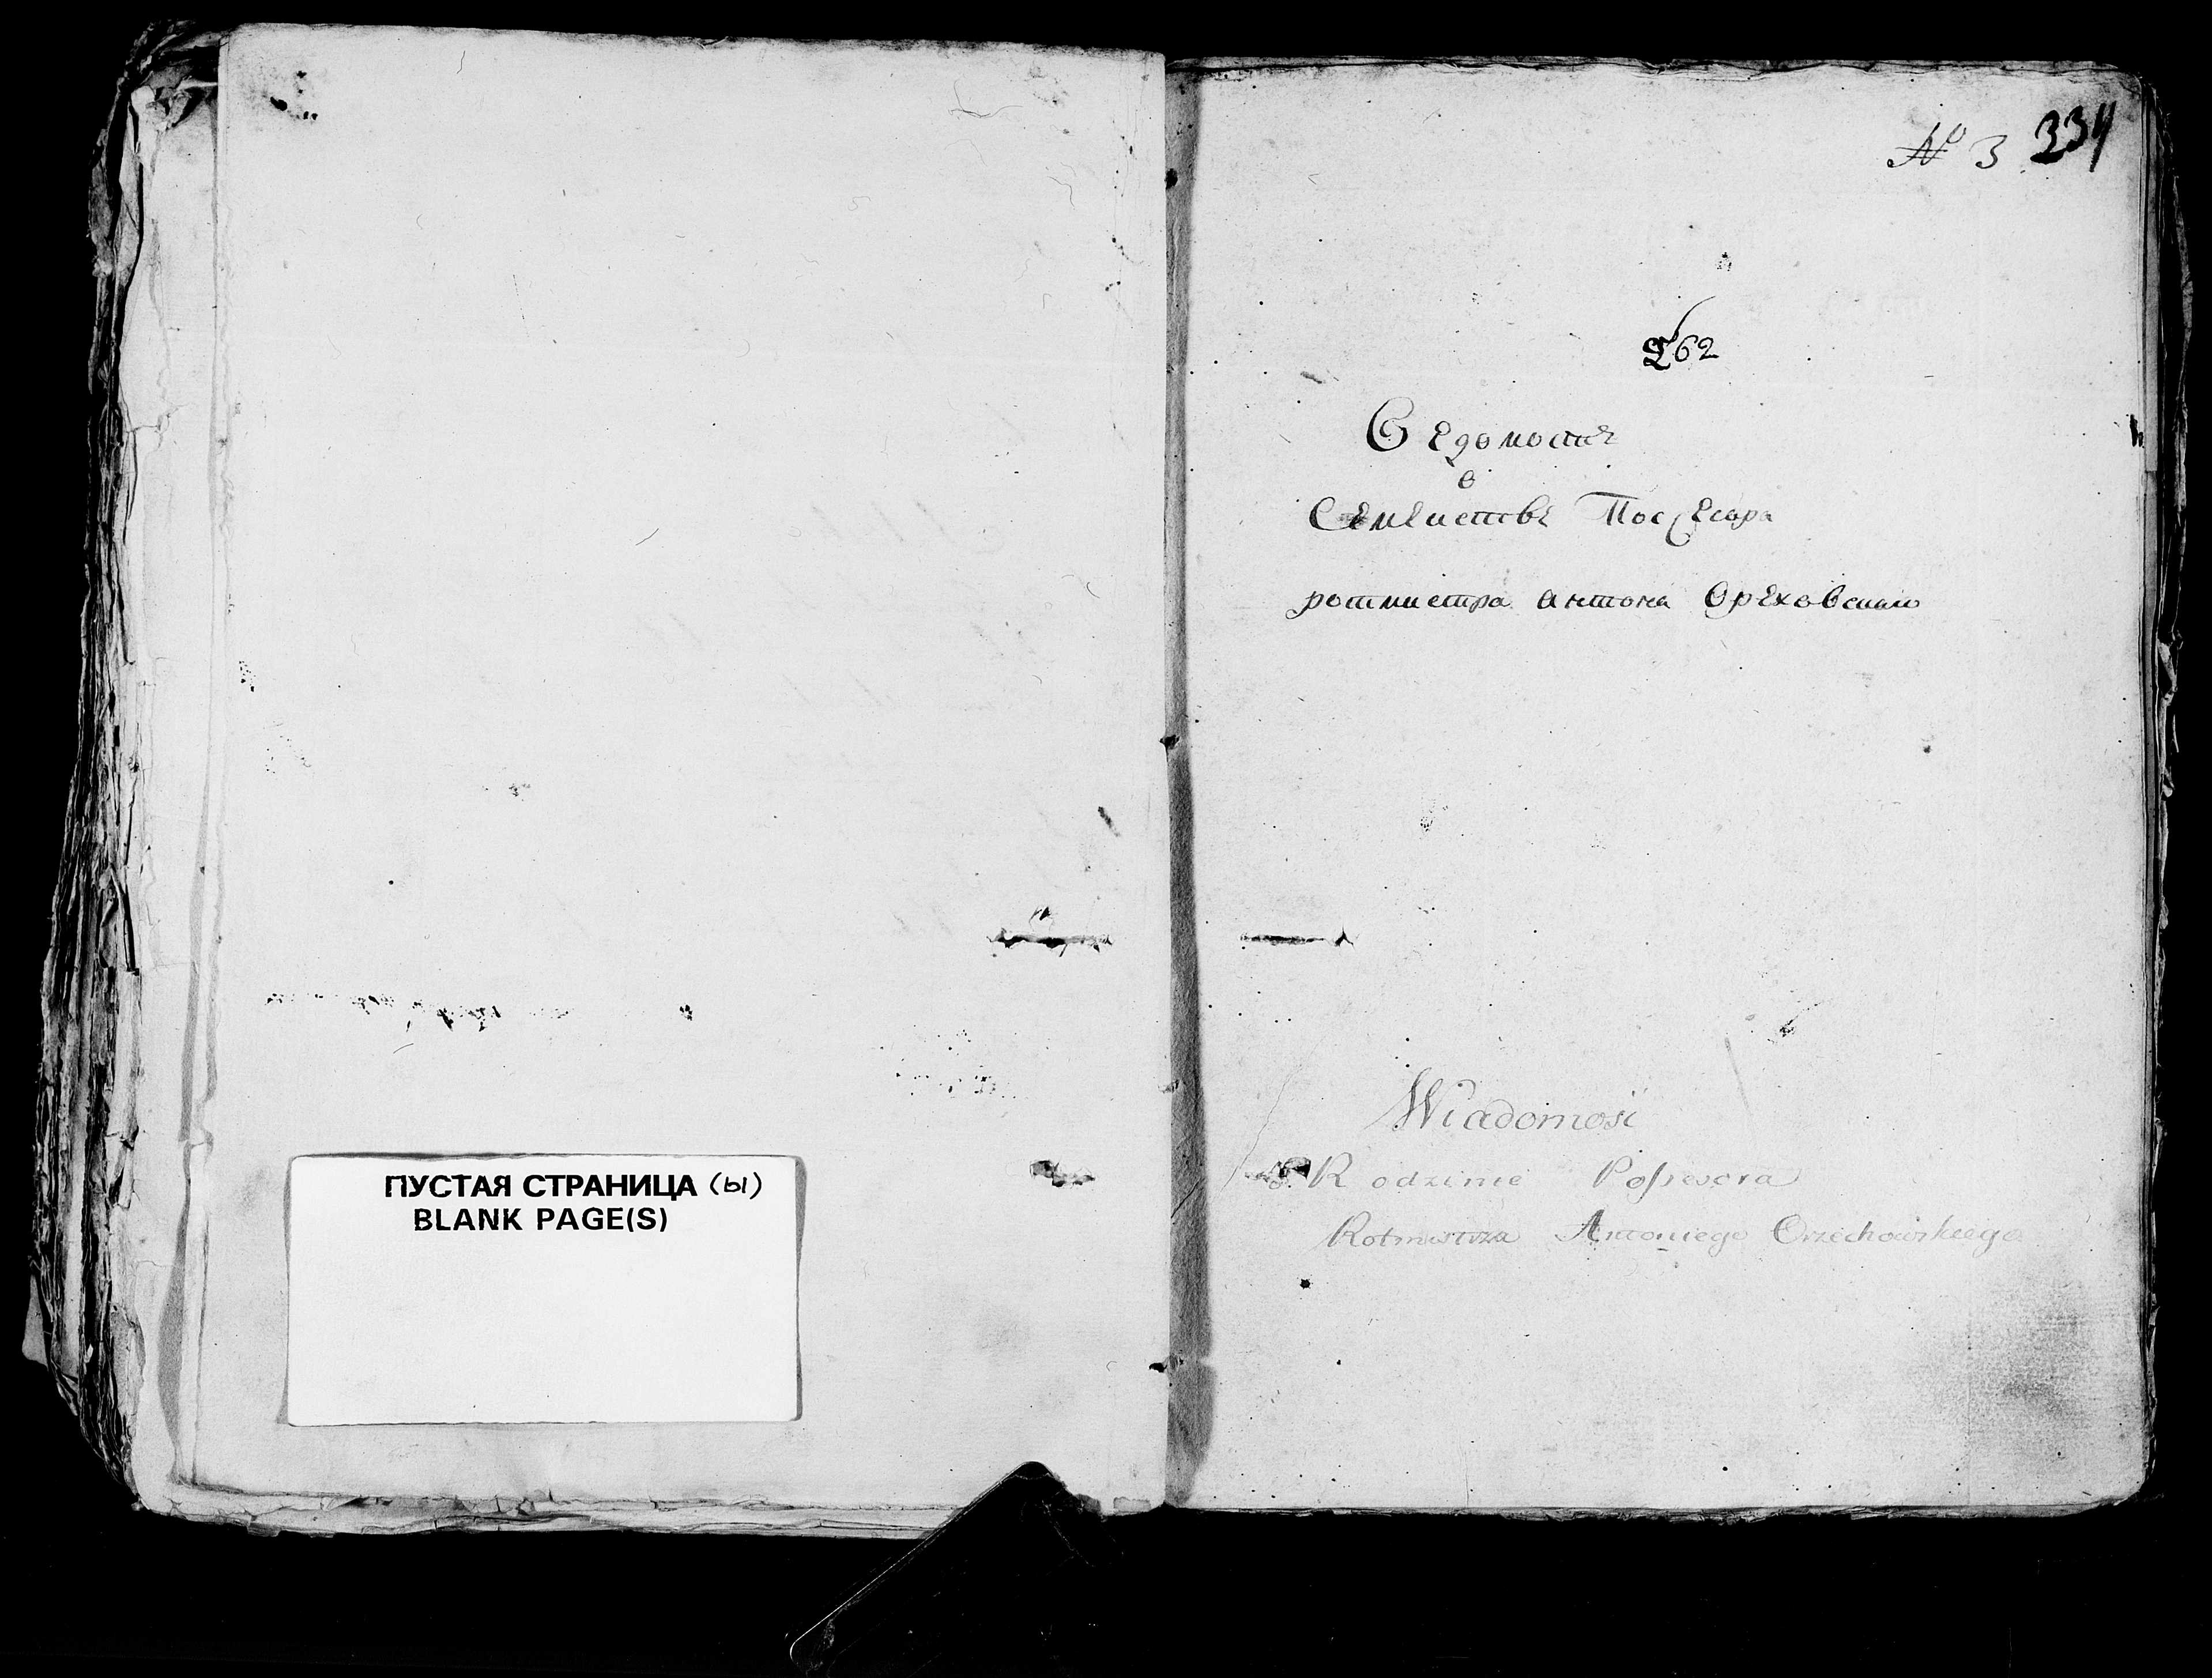 ПУСТАЯ СТРАНИЦА (ы)
BLANK PAGE(S)
№ 3 334
262
Ведомость
о
Семеистве Поссесора
ротмистра Антона Ореховскаго
Wiadomość
o Rodzinie Possesora
Rotmistrza Antoniego Orzechowskiego